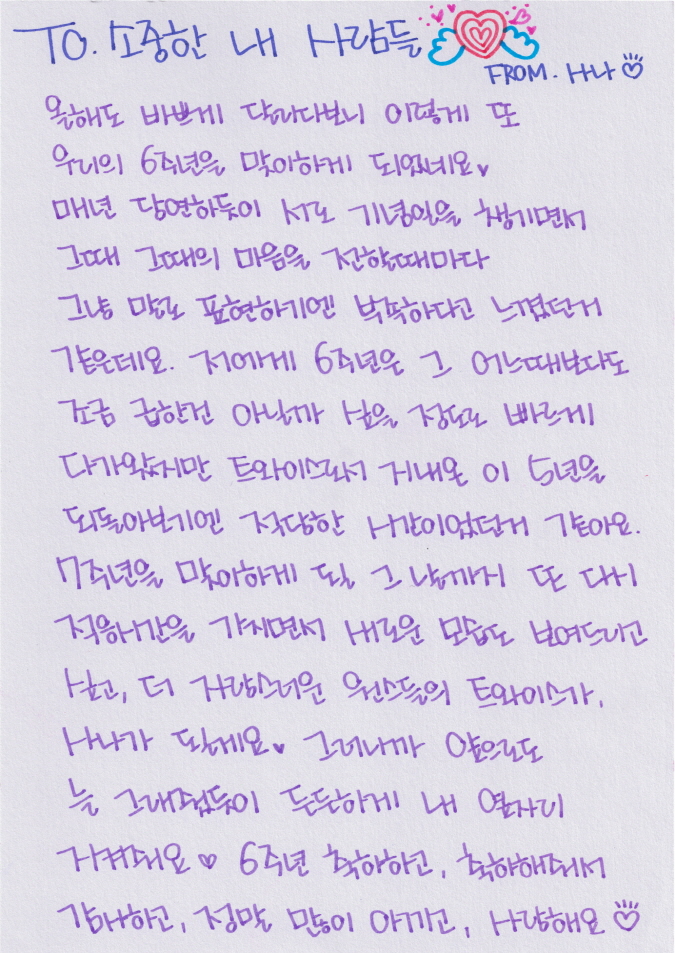 TO. 소중한 내 사람들
FROM. 사나
올해도 바쁘게 달리다보니 이렇게 또
우리의 6주년을 맞이하게 되었네요♥
매년 당연하듯이 서로 기념일을 챙기면서
그때 그때의 마음을 전할때마다
그냥 말로 표현하기엔 벅찼하다고 느꼈던거
같은데요. 저에게 6주년은 그 어느때보다도
조금 급한건 아닐까 싶을 정도로 빠르게
다가왔지만 트와이스로서 지내온 이 5년을
되돌아보기엔 적당한 시간이었던거 같아요.
7주년을 맞이하게 될 그 날까지 또 다시
적응시간을 가지면서 새로운 모습도 보여드리고
싶고, 더 자랑스러운 원스들의 트와이스가,
사나가 될게요♥ 그러니까 앞으로도
늘 그래줬듯이 든든하게 내 옆자리
지켜줘요♡ 6주년 축하하고, 축하해줘서
감사하고, 정말 많이 아끼고, 사랑해요♡